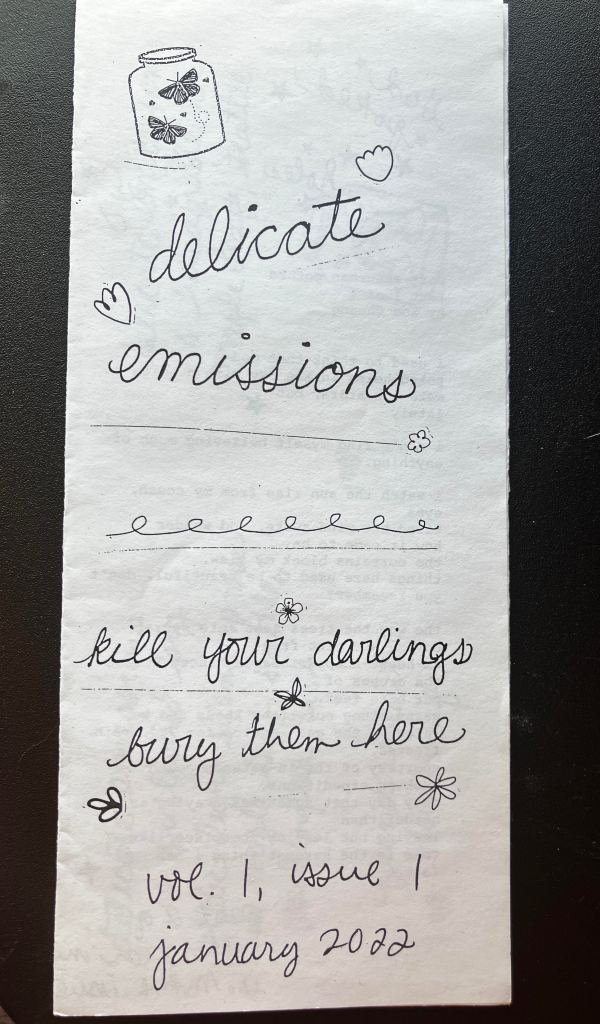 delicate
emissions
kill your darlings
bury them here
vol. 1, issue 1
january 2022